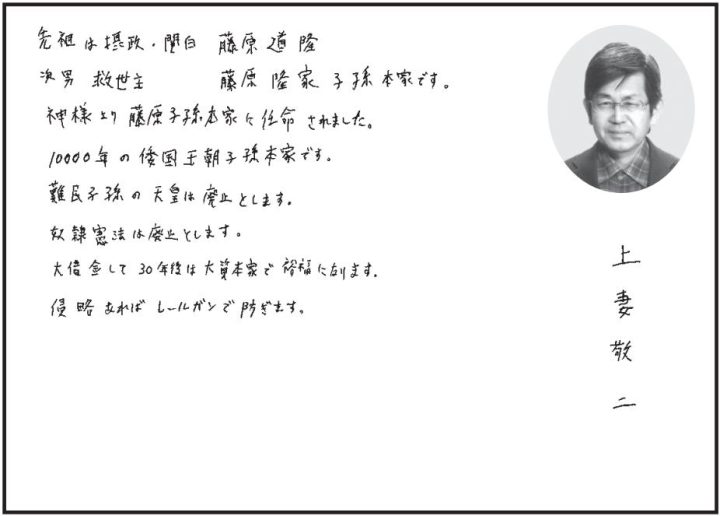 先祖は摂政・関白 藤原道隆
次男 救世主 藤原隆家子孫本家です。
神様より藤原子孫本家に任命されました。
10000年の倭国王朝子孫本家です。
難民子孫の天皇は廃止とします。
奴隷憲法は廃止とします。
大借金して30年後は大資本家で裕福になります。
侵略あればレールガンで防ぎます。
上妻敬二